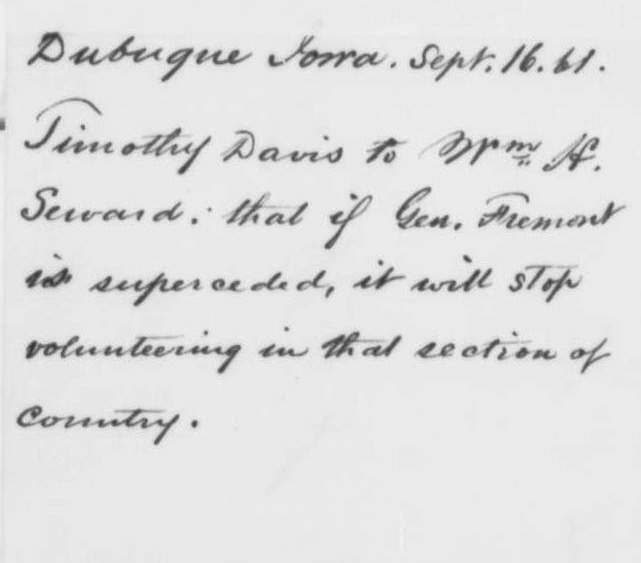 Dubuque Iowa. Sept. 16. 61.
Timothy Davis to Wm. H.
Seward: that if Gen. Fremont
is superceded, it will stop
volunteering in that section of
country.